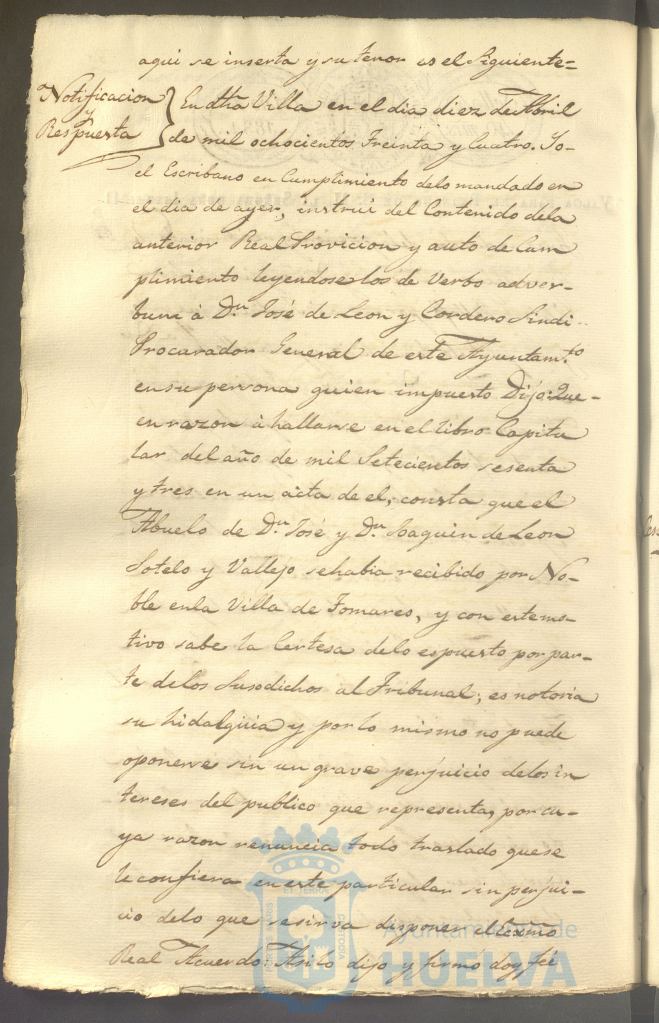 aqui se inserta y su tenor es el Siguiente=
Notificacion
y
Respuesta
En dha Villa en el dia diez de Abril
de mil ochocientos Treinta y Cuatro. Yo-
el Escribano en Cumplimiento delo mandado en
el dia de ayer, instruí del Contenido dela
anterior Real Provicion y auto de Cum
plimiento leyendoselos de Verbo adver-
bum à Dn José de Leon y Cordero Sindi..
Procurador General de este Ayuntamto
en su persona quien impuesto Dijo: Que-
en razon à hallarse en el libro Capitu
lar del año de mil Setecientos sesenta
y tres en un acta de el, consta que el
Abuelo de Dn José y Dn Joaquin de Leon
Sotelo y Vallejo se habia recibido por No-
ble enla Villa de Tomares, y con este mo-
tivo sabe la Certesa delo espuesto por par-
te delos Susodichos al Tribunal; es notoria
su hidalguia y por lo mismo no puede
oponerse sin un grave perjuicio delos in
tereses del publico que representa, por cu-
ya razon renuncia todo traslado que se
le confiera en este particular sin perjui-
cio delo que se sirva disponer el Excmo
Real Acuerdo: Asi lo dijo y firmó doy fé
Ayuntamiento de
HUELVA